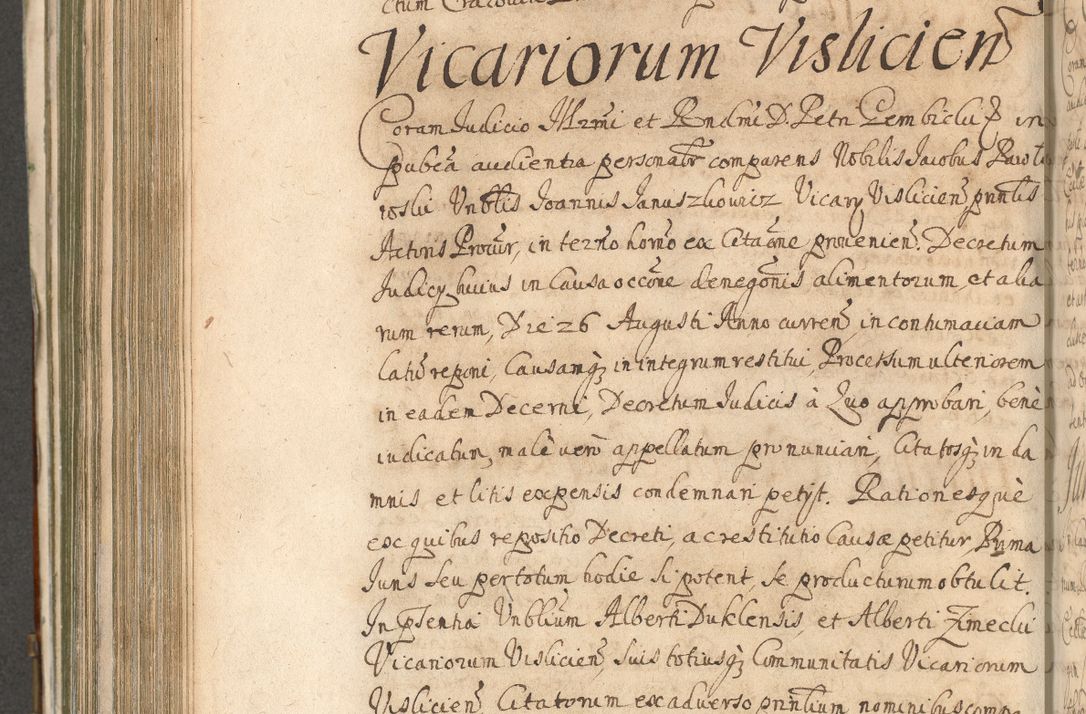 Vicariorum Vislicien̄
Coram Judicio Illrmi et Rndmi D. Petri Gembiclii in
pubca audientia personatr comparens Nobilis Jacobus
roslii Vnblis Joannis Januszkowicz Vicarÿ Vislicien̄ pnntis
Actoris Procur, in terno horno ex Citaone prouenien. Decretum
Judicÿ huius in Causa occone denegonis alimentorum, et alia
rum rerum, Die 26 Augusti Anno curren̄ in contumaciam
Latu reponi, Causamqȝ in integrum restitui, Processum ulteriorem
in eadem Decerni, Decretum Judicis à Quo approbari, benè
iudicatum, malè vero appellatum pronunciari, Citatosqȝ in da
mnis et litis expensis condemnari petijt. Rationesquè
ex quibus repositio Decreti, ac restitutio Causæ petitur, Prima
Juris seu pertotum hodie si potent, se producturum obtulit.
In psentia Vnblium Alberti Duklensis, et Alberti Zimeclii
Vicariorum Vislicien̄ suis totiusqȝ Communitatis Vicariorum
Vislicien̄ Citatorum ex aduerso pnntium nominibus compa